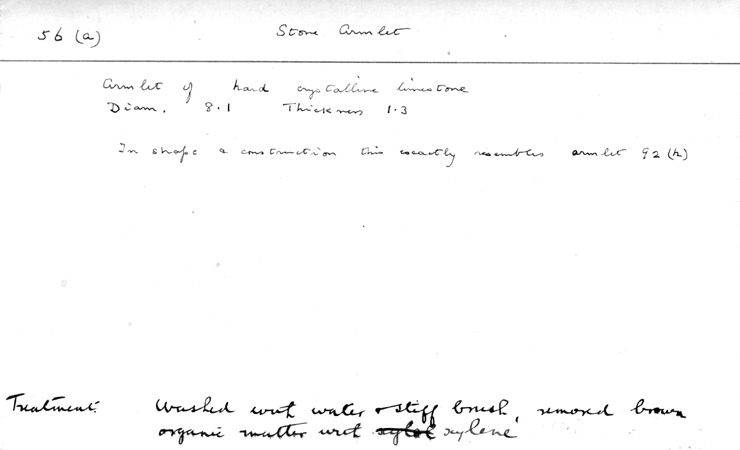 56 (a) Stone Armlet
Armlet of hard crystalline limestone
Diam. 8·1 Thickness 1·3
In shape & construction this exactly resembles armlet 92 (h)
Treatment: Washed with water & stiff brush, removed brown
organic matter with xylol xylene